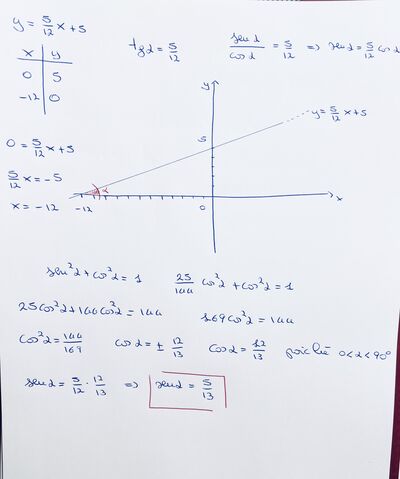 y = 5/12 x + 5
tg α = 5/12
sen α / cos α = 5/12 => sen α = 5/12 cos α
x y
0 5
-12 0
0 = 5/12 x + 5
5/12 x = -5
x = -12
y
y = 5/12 x + 5
5
α
-12
0
x
sen²α + cos²α = 1
25/144 cos²α + cos²α = 1
25cos²α + 144cos²α = 144
169cos²α = 144
cos²α = 144/169
cos α = ± 12/13
cos α = 12/13 poiché 0 < α < 90°
sen α = 5/12 · 12/13 => sen α = 5/13